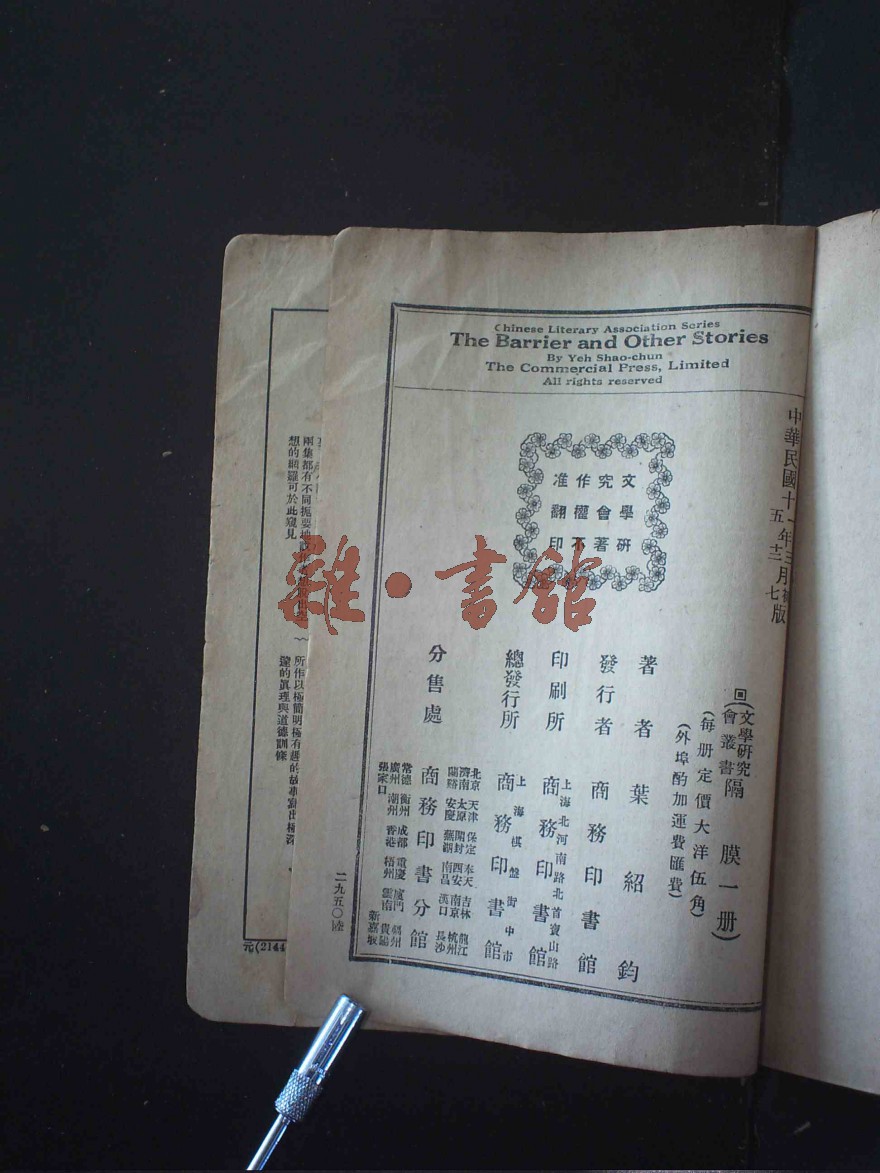 Chinese Literary Association Series
The Barrier and Other Stories
By Yeh Shao-chun
The Commercial Press, Limited
All rights reserved
中華民國十一年三月初版
五年十二月七版
文學研究會叢書
隔膜一册
(每册定價大洋伍角)
(外埠酌加運費匯費)
文學研
究會著
作權不
准翻印
著者 葉紹鈞
發行者 商務印書館
印刷所 上海北河南路北首寶山路 商務印書館
總發行所 上海棋盤街中市 商務印書館
分售處 商務印書分館
北京 天津 保定 奉天 吉林 龍江
濟南 太原 開封 西安 南京 杭州
蘭谿 安慶 蕪湖 南昌 漢口 長沙
常德 衡州 成都 重慶 廈門 福州
廣州 潮州 香港 梧州 雲南 貴陽
張家口 新嘉坡
二九五〇陸
兩集都有不同扼要地
想的網羅可於此窺見
所作以極簡明極有趣的故事寫出極深
邃的眞理與道德訓條
元(2144
雜·書館